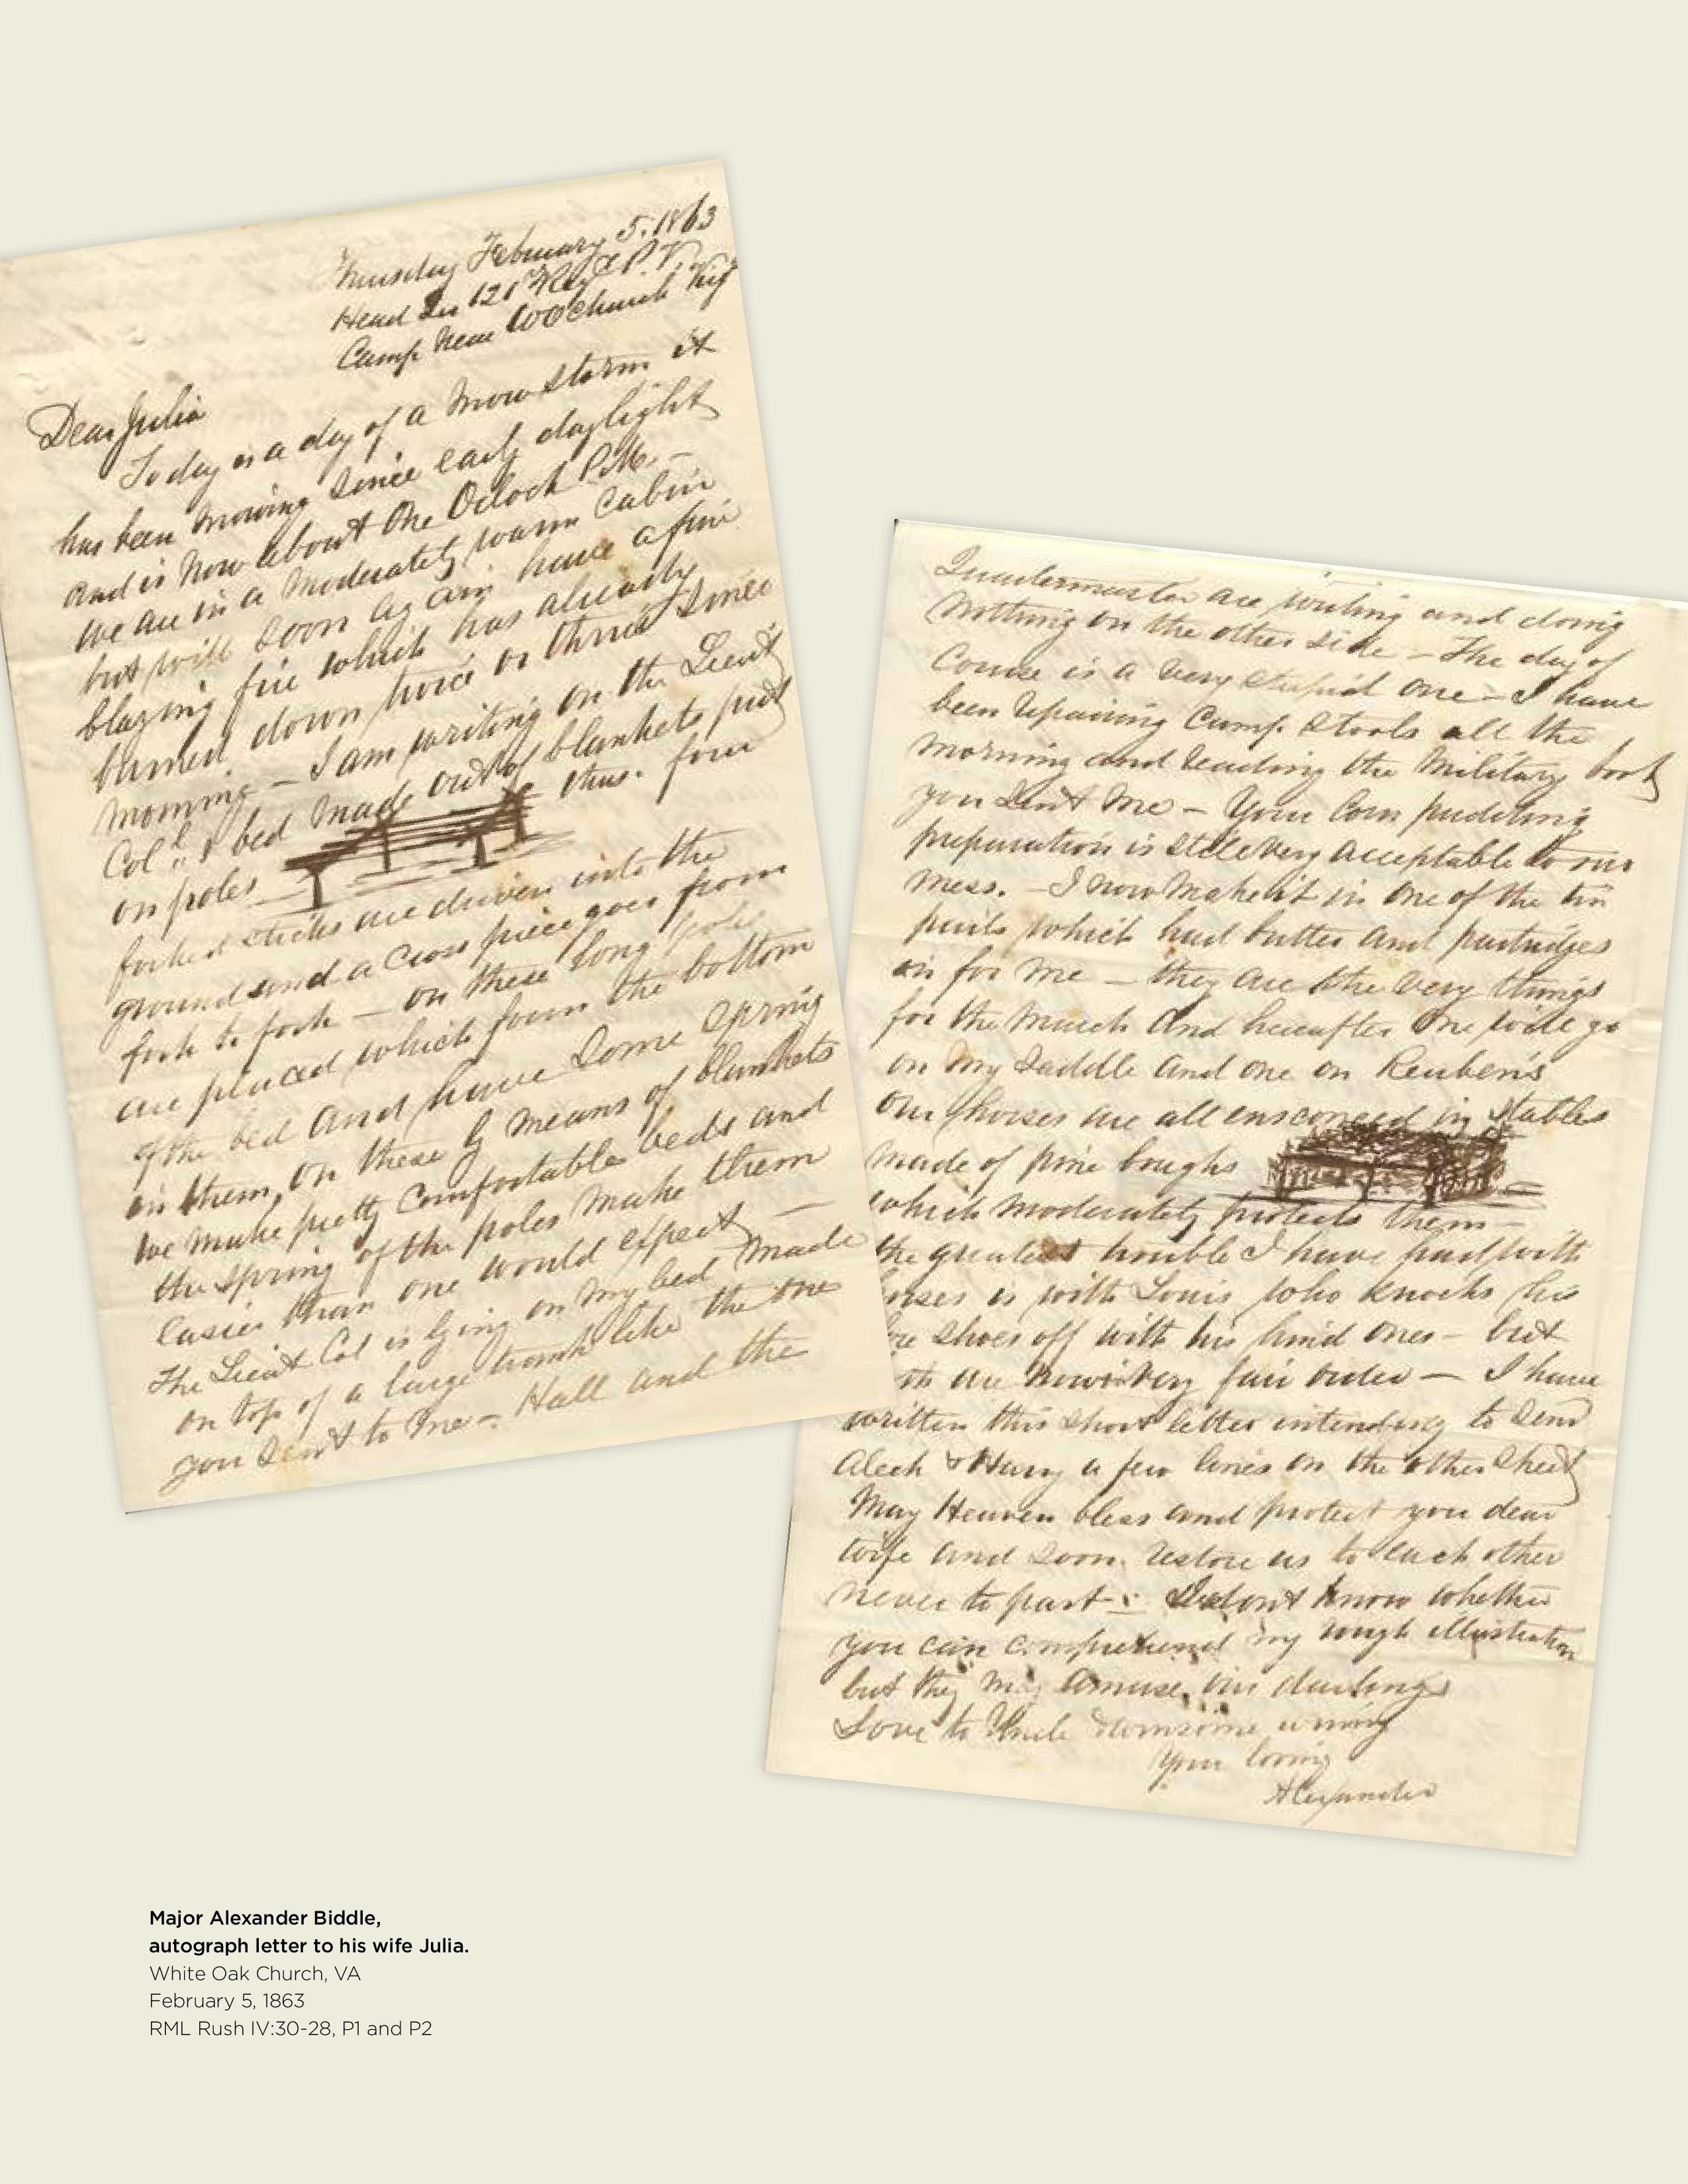 Thursday February 5. 1863
Head Qrs 121st Reg P. V.
Camp near W O Church Virg
Dear Julia
Today is a day of a snow storm it
has been snowing since early daylight
and is now about One Oclock P.M. –
we are in a moderately warm cabin
but will soon again have a fine
blazing fire which has already
burned down twice or thrice since
morning – I am writing on the Lieut
Col's bed made out of blankets put
on poles thus. four
forked sticks are driven into the
ground and a cross piece goes from
fork to fork – on these long poles
are placed which form the bottom
of the bed and have some spring
in them, on these by means of blankets
we make pretty comfortable beds and
the spring of the poles make them
easier than one would expect –
The Lieut Col is lying on my bed made
on top of a large trunk like the one
you sent to me – Hall and the
Quartermaster are writing and doing
nothing on the other side – The day of
course is a very stupid one – I have
been repairing camp stools all the
morning and reading the Military book
you sent me – Your corn pudding
preparation is still very acceptable to our
mess. – I now make it in one of the tin
pails which had butter and partridges
in for me – they are the very things
for the march and hereafter one will go
on my saddle and one on Reuben's
our horses are all ensconced in stables
made of pine boughs
which moderately protects them –
the greatest trouble I have had with
horses is with Louis who knocks his
fore shoes off with his hind ones – but
are now in very fair order – I have
written this short letter intending to send
Aleck & Harry a few lines on the other sheet
May Heaven bless and protect you dear
wife and soon restore us to each other
never to part – I dont know whether
you can comprehend my rough illustration
but they may amuse our darlings
Love to Uncle
Your loving
Alexander
Major Alexander Biddle,
autograph letter to his wife Julia.
White Oak Church, VA
February 5, 1863
RML Rush IV:30-28, P1 and P2